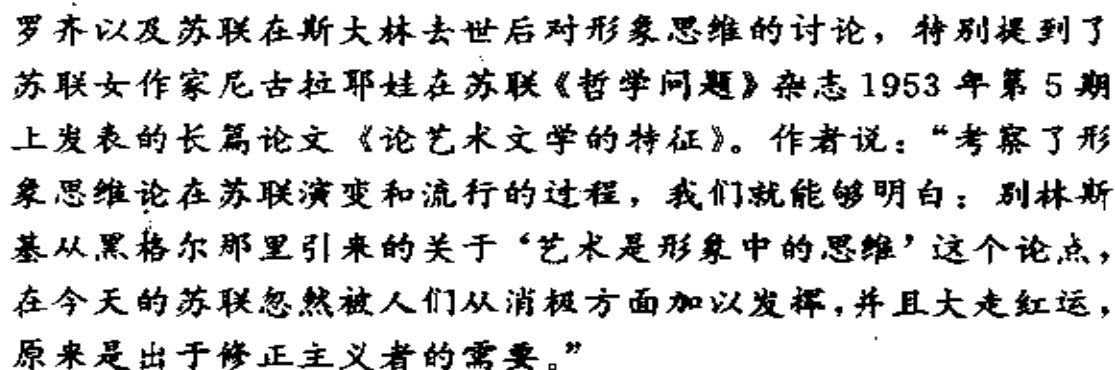 罗齐以及苏联在斯大林去世后对形象思维的讨论，特别提到了
苏联女作家尼古拉耶娃在苏联《哲学问题》杂志1953年第5期
上发表的长篇论文《论艺术文学的特征》。作者说：“考察了形
象思维论在苏联演变和流行的过程，我们就能够明白：别林斯
基从黑格尔那里引来的关于‘艺术是形象中的思维’这个论点，
在今天的苏联忽然被人们从消极方面加以发挥，并且大走红运，
原来是出于修正主义者的需要。”